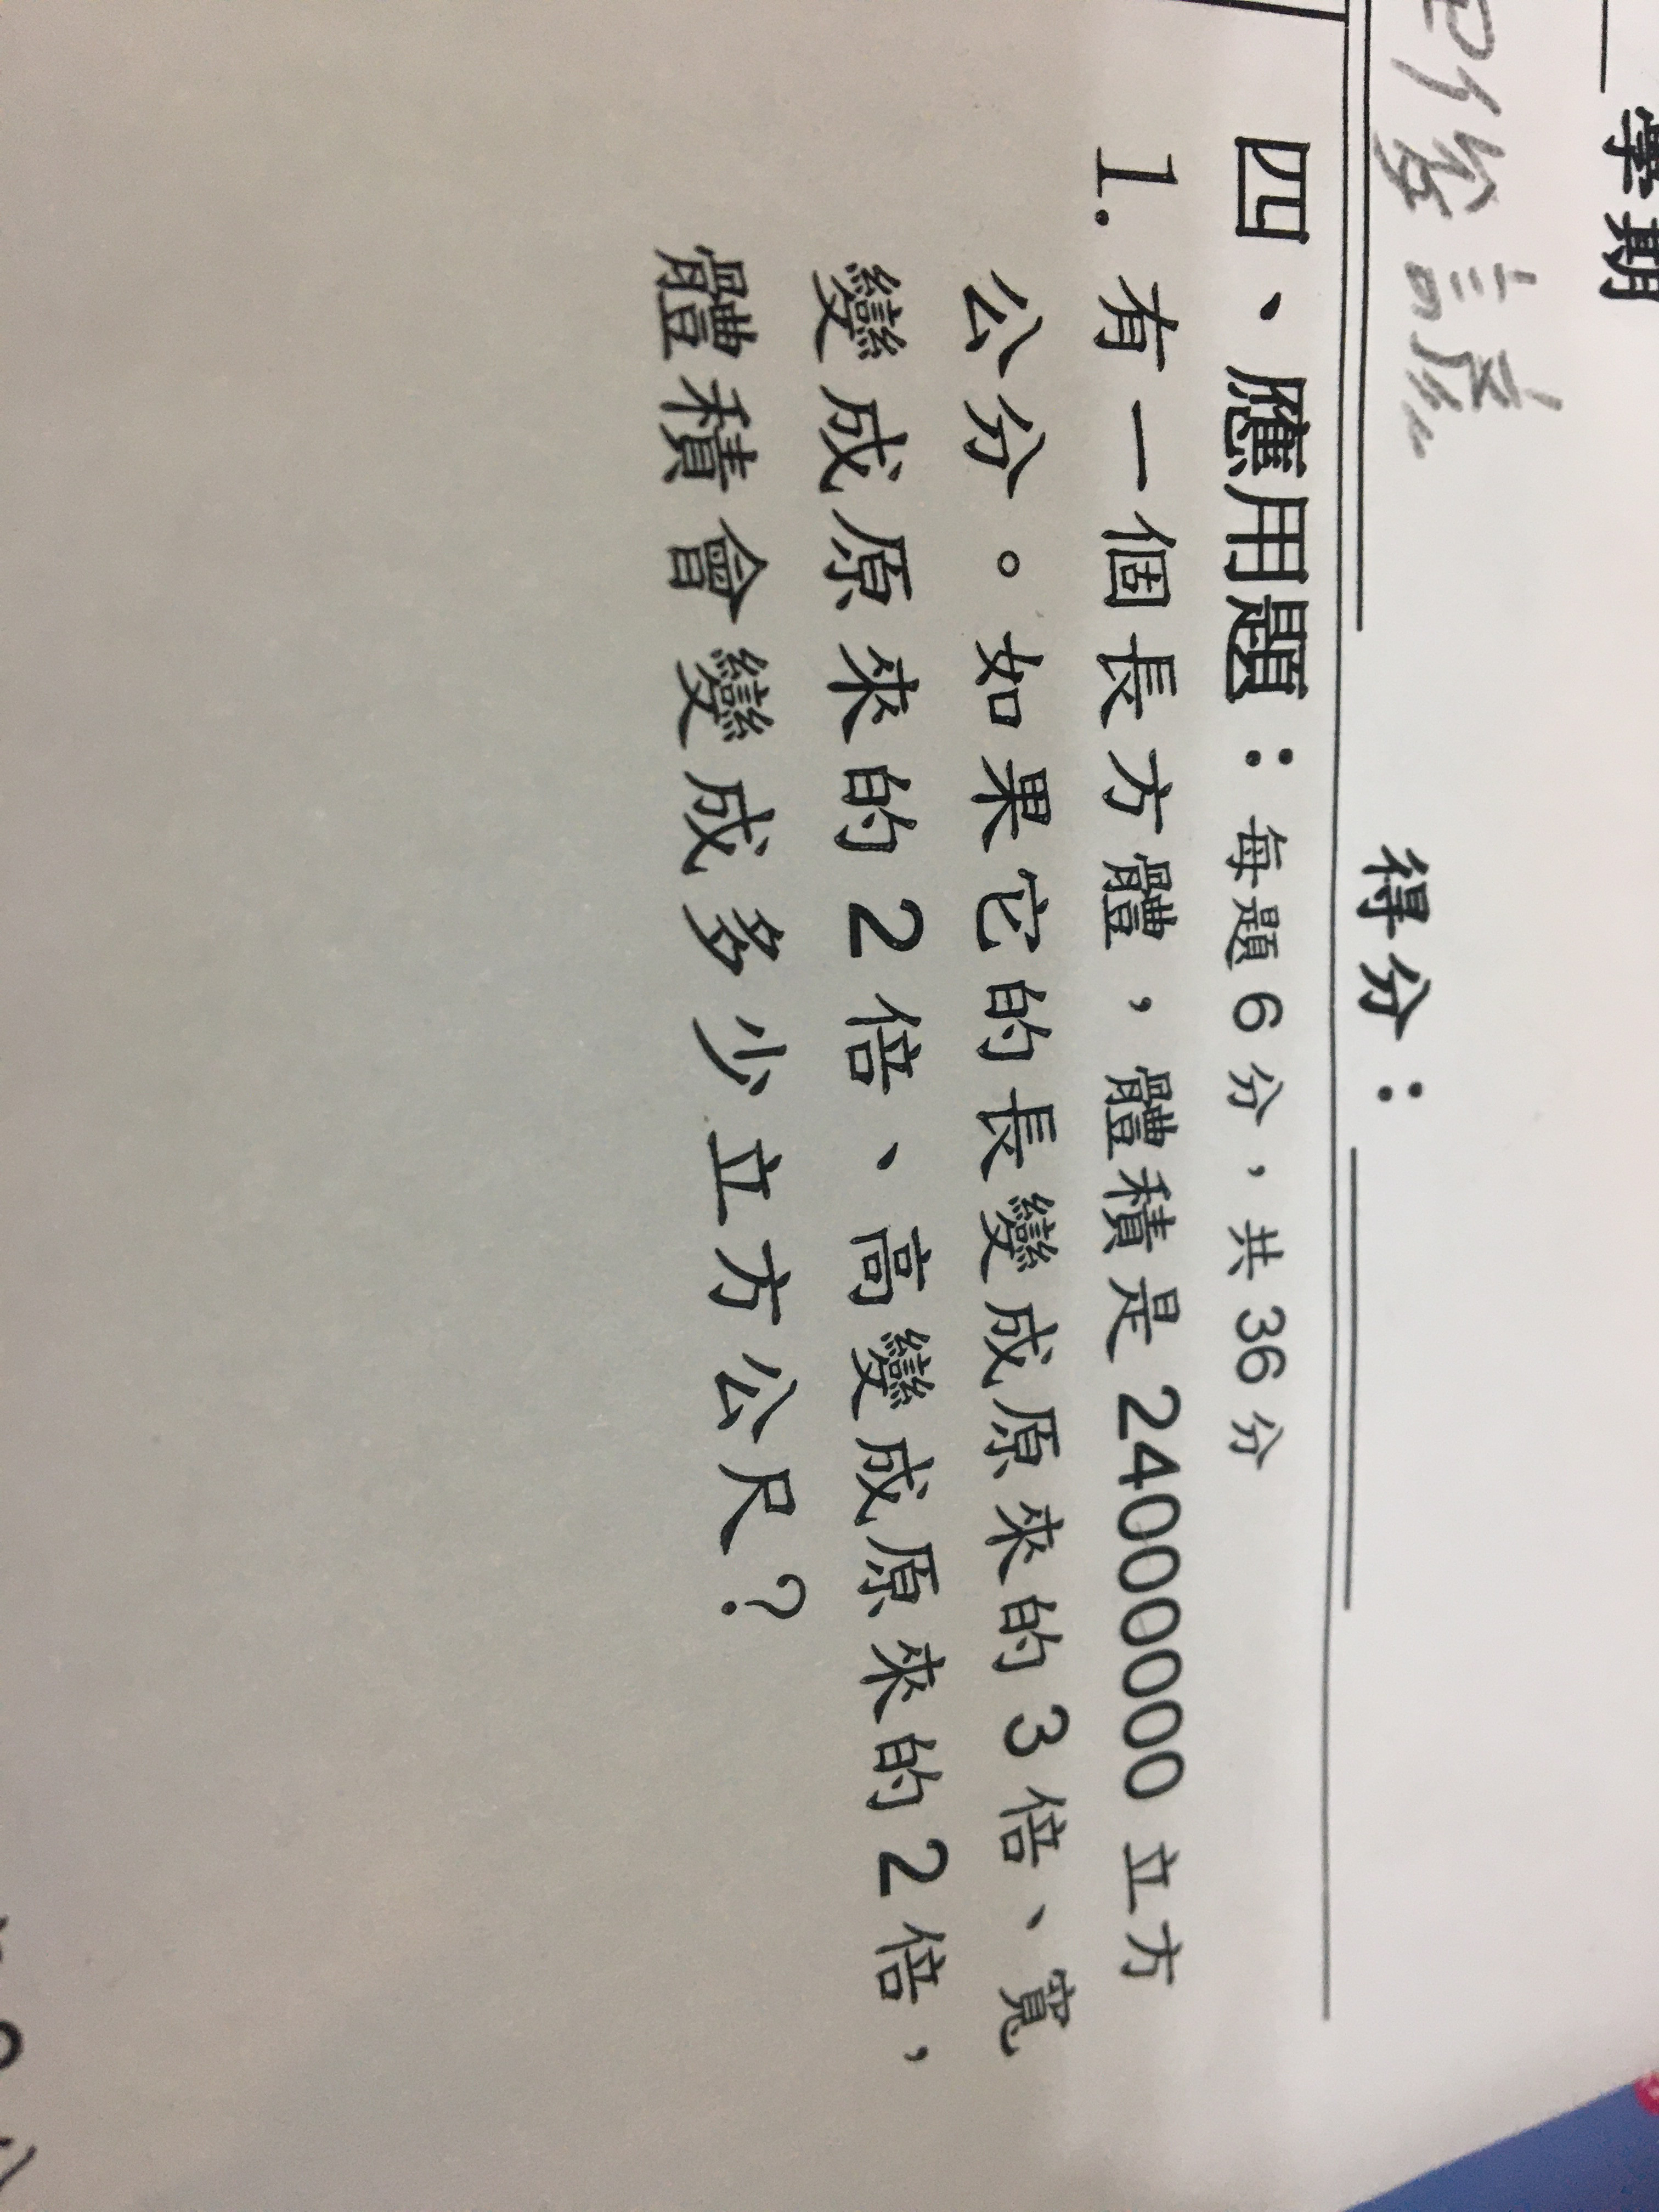 學期
得分：
四、應用題：每題6分，共36分
1. 有一個長方體，體積是 240000000 立方
公分。如果它的長變成原來的3倍、寬
變成原來的2倍、高變成原來的2倍，
體積會變成多少立方公尺？